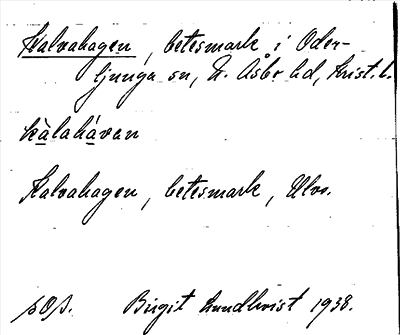 Kalvahagen, betesmark i Oder-
ljunga sn, N. Åsbo hd, Krist. l.
kàlahávan
Kalvahagen, betesmark,
Birgit Lundkvist 1938.